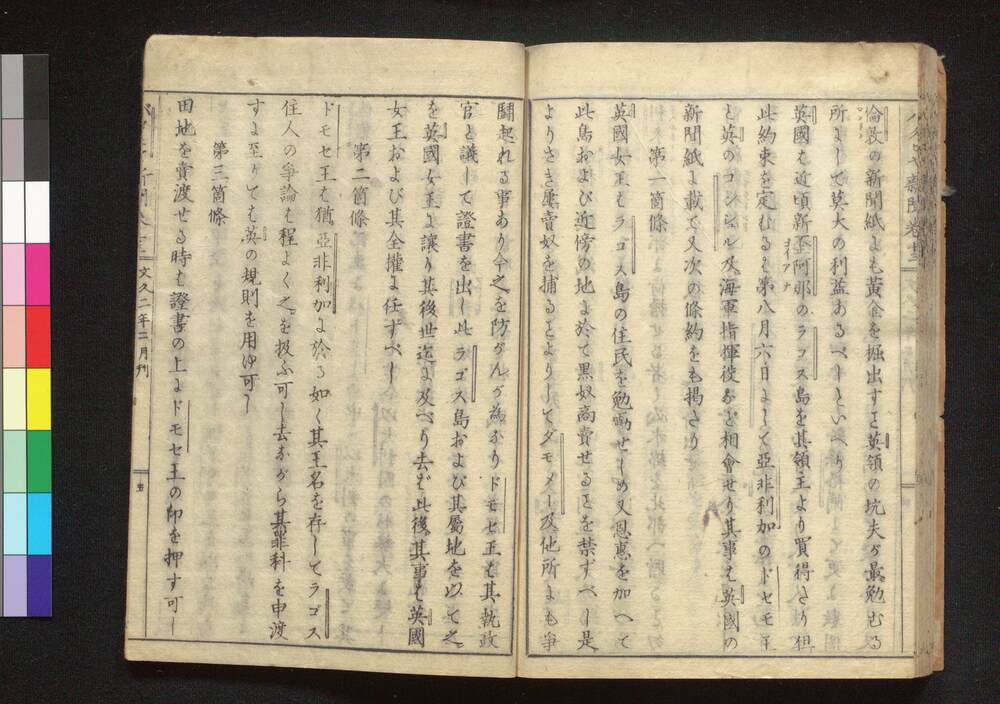 倫敦の新聞紙よも黄金を掘出すと英領の坑夫ガ最勉むる
所よして莫大の利益あるべしといへり
英國も近頃新亞阿那のラゴス島を其領主より買得さり但
此約束を定むるも第八月六日よして亞非利加のドセモ王
と英のコンシュル及海軍指揮役などゝ相會せり其事も英國の
新聞紙よ載て又次の條約をも掲さり
第一箇條
英國女王もラゴス島の住民を勉勵せしめ又恩惠を加へて
此島および近傍の地よ於て黒奴商賣せるとを禁ずべし是
よりさき屡賣奴を捕るとよりしてダモメー及他所よも爭
鬪起れる事あり今之を防がんが為なりドモセ王も其執政
官と議して證書を出し此ラゴス島および其屬地を以て之
を英國女王よ讓り其後世迄よ及べり去バ此後其事も英國
女王および其全權よ任ずべし
第二箇條
ドモセ王も猶亞非利加よ於る如く其王名を存してラゴス
住人の爭論も程よく之を扱ふ可し去ながら其罪科を申渡
すよ至りても英の規則を用ゆ可し
第三箇條
田地を賣渡せる時も證書の上よドモセ王の印を押す可し
文久二年二月刊